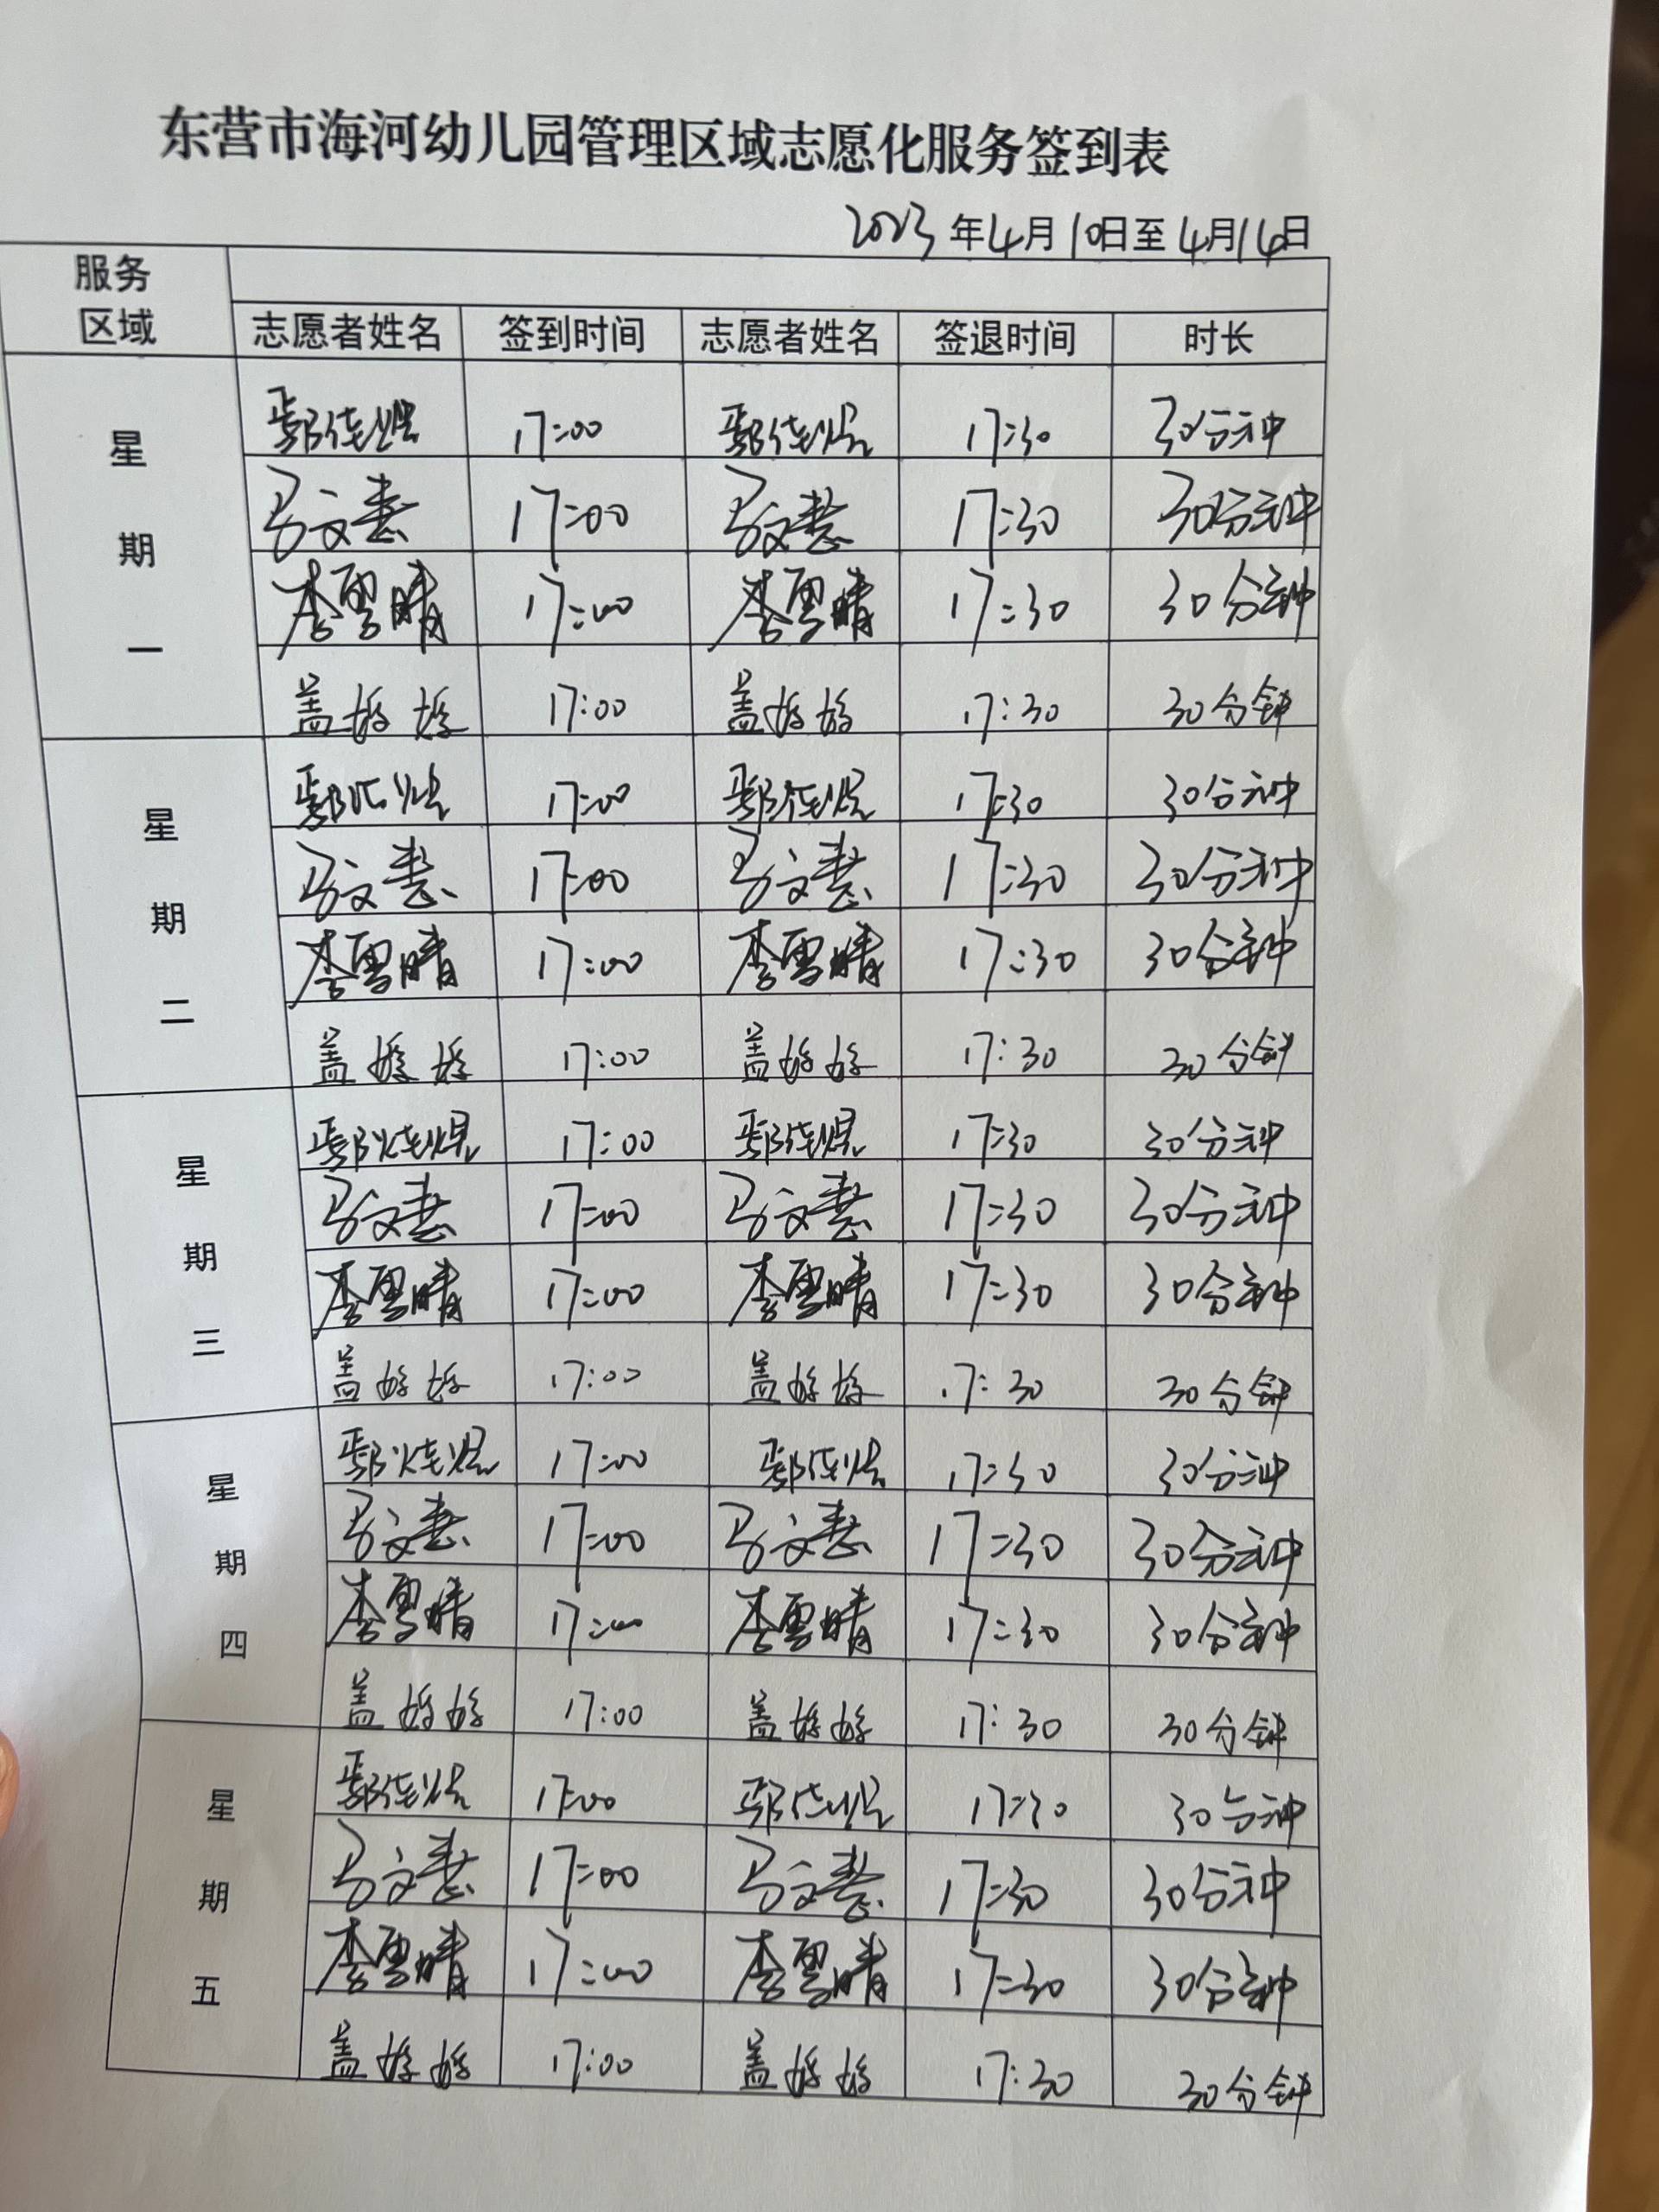 东营市海河幼儿园管理区域志愿化服务签到表
2023年4月10日至4月14日
服务区域
志愿者姓名 签到时间 志愿者姓名 签退时间 时长
星期一
17:00 17:30 30分钟
马文慧 17:00 马文慧 17:30 30分钟
李雪晴 17:00 李雪晴 17:30 30分钟
盖婷婷 17:00 盖婷婷 17:30 30分钟
星期二
17:00 17:30 30分钟
马文慧 17:00 马文慧 17:30 30分钟
李雪晴 17:00 李雪晴 17:30 30分钟
盖婷婷 17:00 盖婷婷 17:30 30分钟
星期三
17:00 17:30 30分钟
马文慧 17:00 马文慧 17:30 30分钟
李雪晴 17:00 李雪晴 17:30 30分钟
盖婷婷 17:00 盖婷婷 17:30 30分钟
星期四
17:00 17:30 30分钟
马文慧 17:00 马文慧 17:30 30分钟
李雪晴 17:00 李雪晴 17:30 30分钟
盖婷婷 17:00 盖婷婷 17:30 30分钟
星期五
17:00 17:30 30分钟
马文慧 17:00 马文慧 17:30 30分钟
李雪晴 17:00 李雪晴 17:30 30分钟
盖婷婷 17:00 盖婷婷 17:30 30分钟